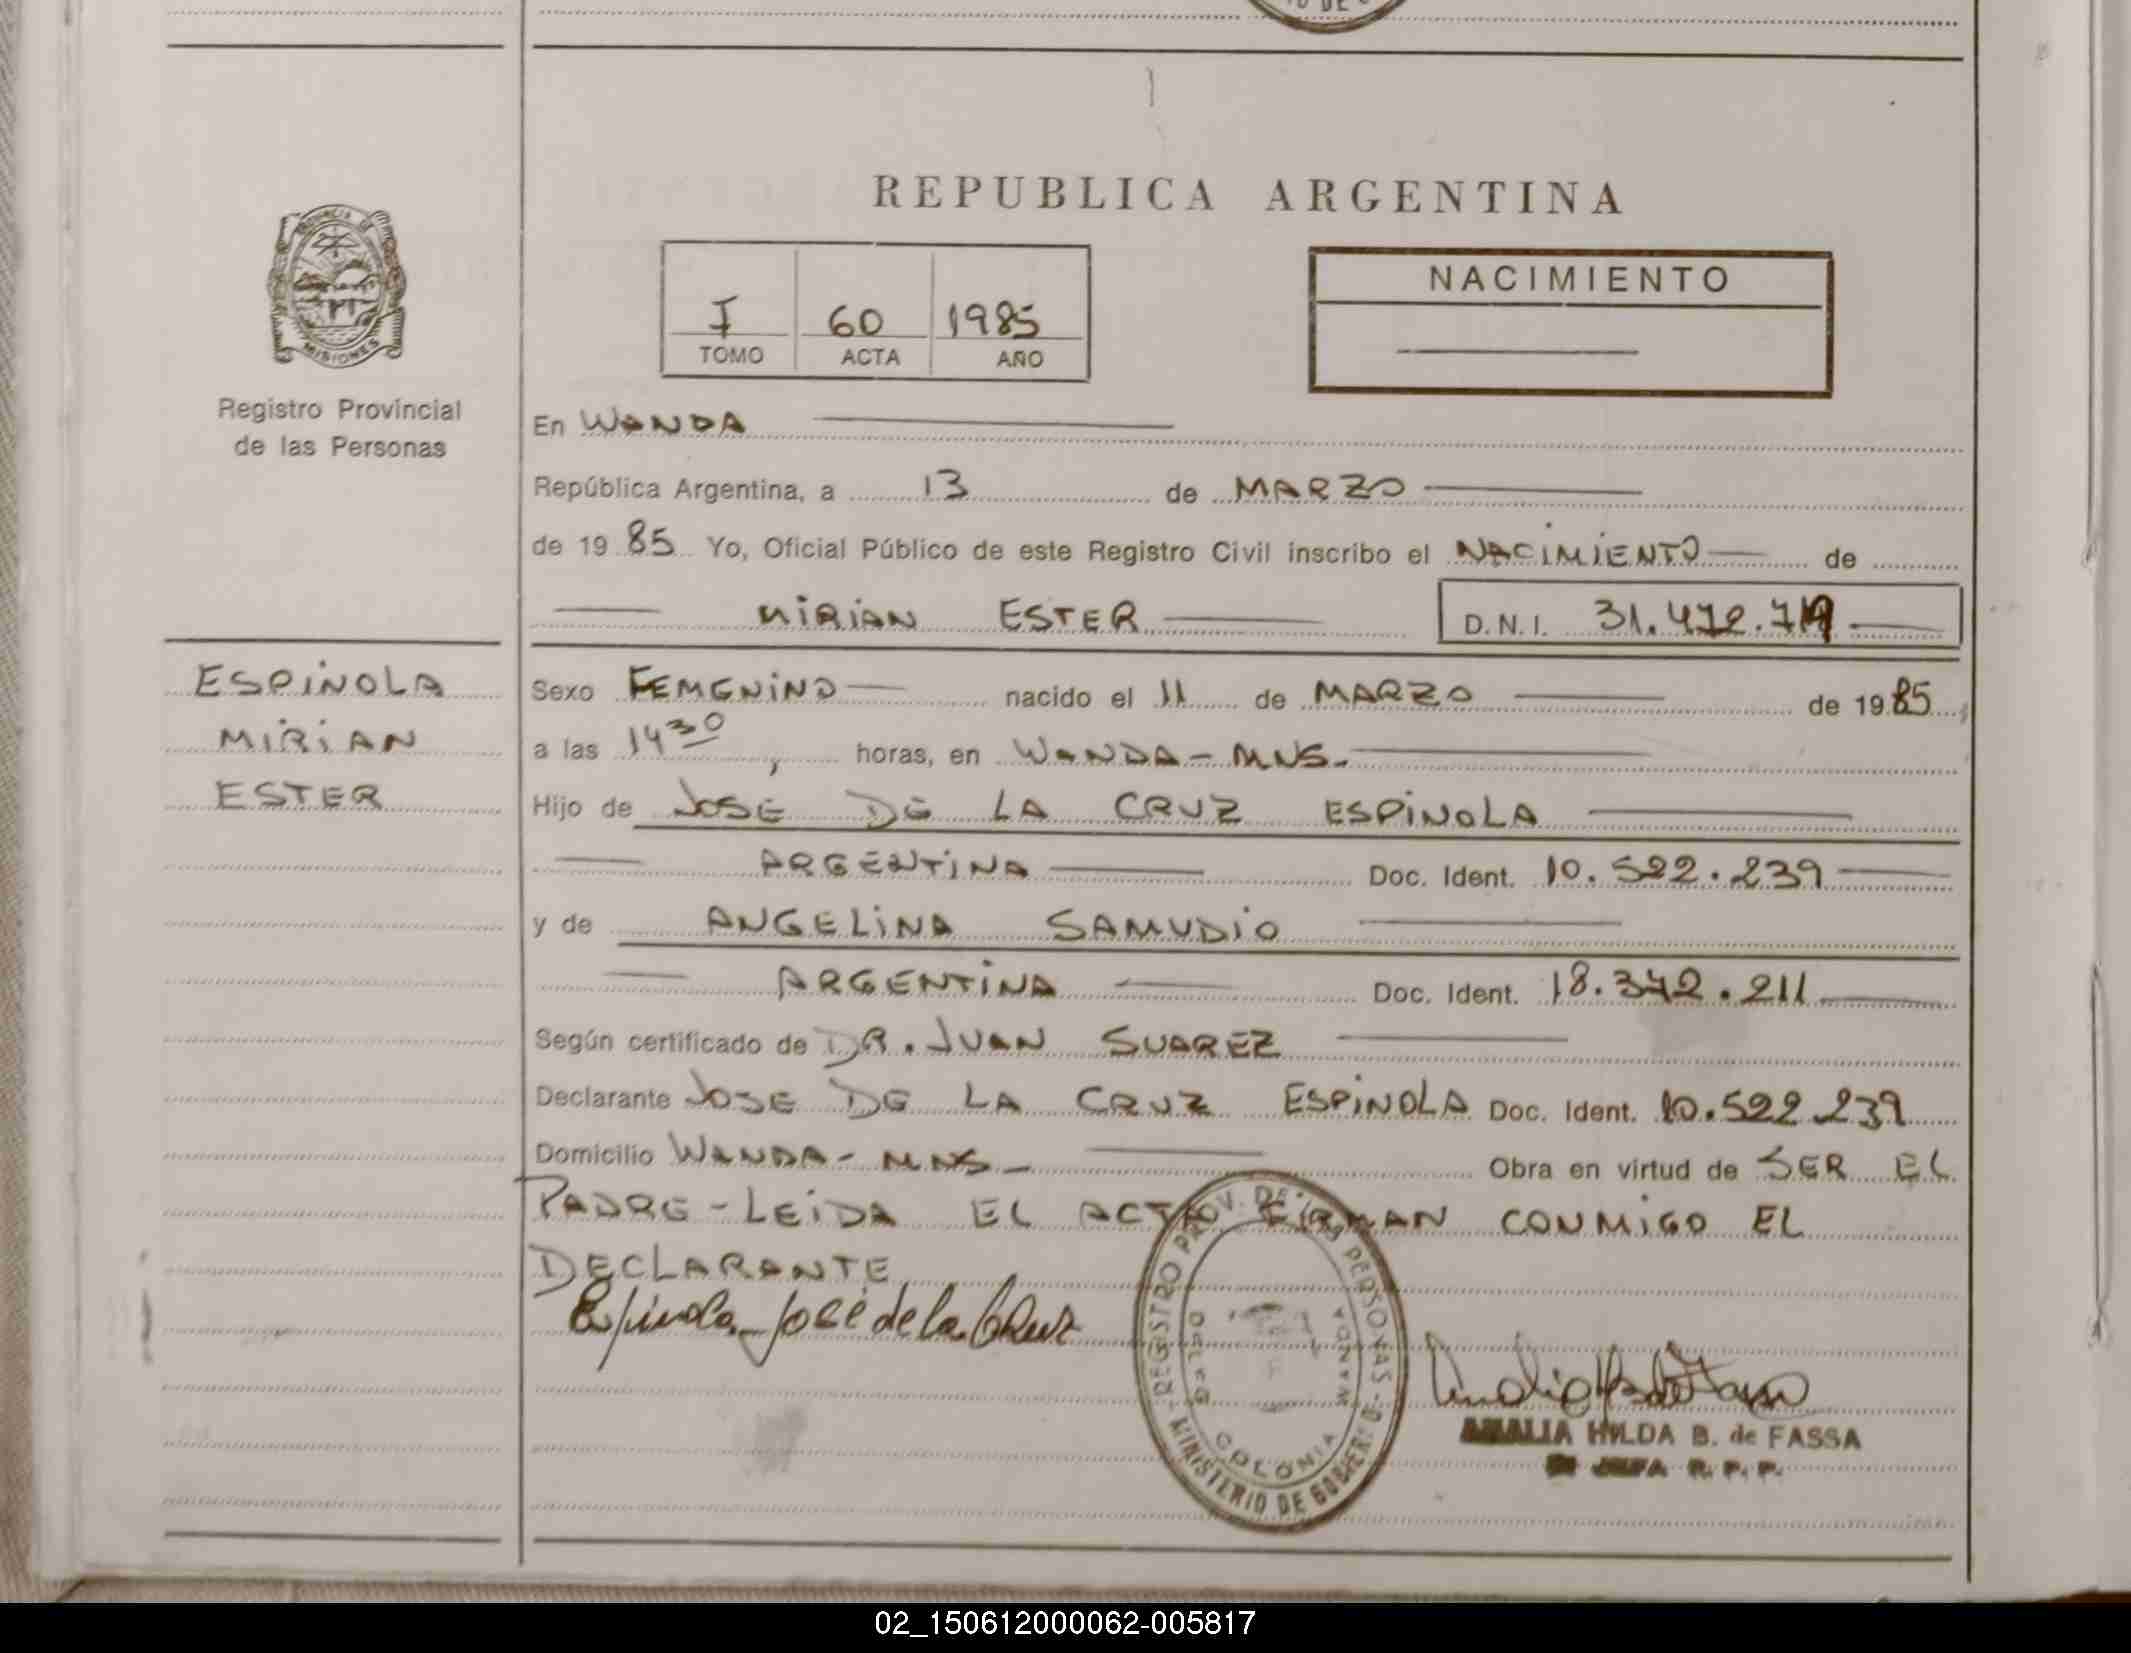 REPUBLICA ARGENTINA
PROVINCIA DE
MISIONES
Registro Provincial
de las Personas
I 60 1985
TOMO ACTA AÑO
NACIMIENTO
En WANDA
República Argentina, a 13 de MARZO
de 1985 Yo, Oficial Público de este Registro Civil inscribo el NACIMIENTO de
MIRIAN ESTER D.N.I.
ESPINOLA
MIRIAN
ESTER
Sexo FEMENINO nacido el 11 de MARZO de 1985
a las 14 30, horas, en WANDA - MNS.
Hijo de JOSE DE LA CRUZ ESPINOLA
ARGENTINA Doc. Ident. 10.522.239
y de ANGELINA SAMUDIO
ARGENTINA Doc. Ident. 18.342.211
Según certificado de DR. JUAN SUAREZ
Declarante JOSE DE LA CRUZ ESPINOLA Doc. Ident. 10.522.239
Domicilio WANDA - MNS - Obra en virtud de SER EL
PADRE - LEIDA EL ACTA FIRMAN CONMIGO EL
DECLARANTE
Espinola José de la Cruz
REGISTRO PROV. DE LAS PERSONAS
MINISTERIO DE GOBIERNO
DELEG
COLONIA
WANDA
AMALIA HILDA B. de FASSA
JEFA R. P. P.
02_150612000062-005817